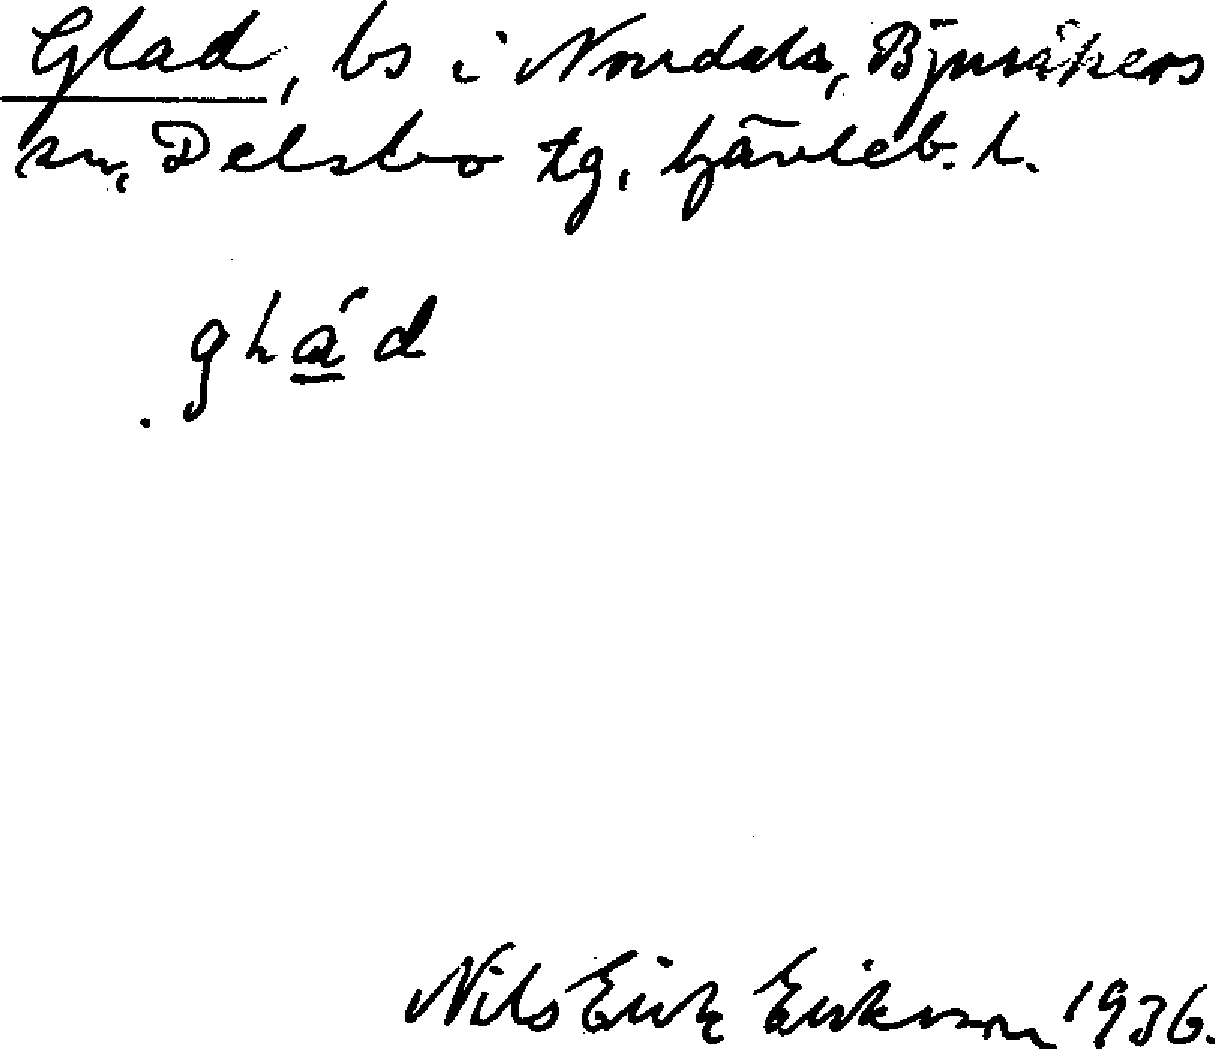 Glad, bs i Norrdala, Bjuråkers
sn, Delsbo tg, Gävleb. l.
glàd
Nils Erik Erikson 1936.